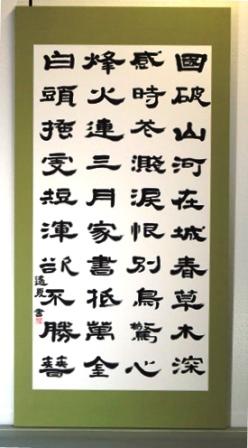 國破山河在城春草木深
感時花濺淚恨別鳥驚心
烽火連三月家書抵萬金
白頭搔更短渾欲不勝簪